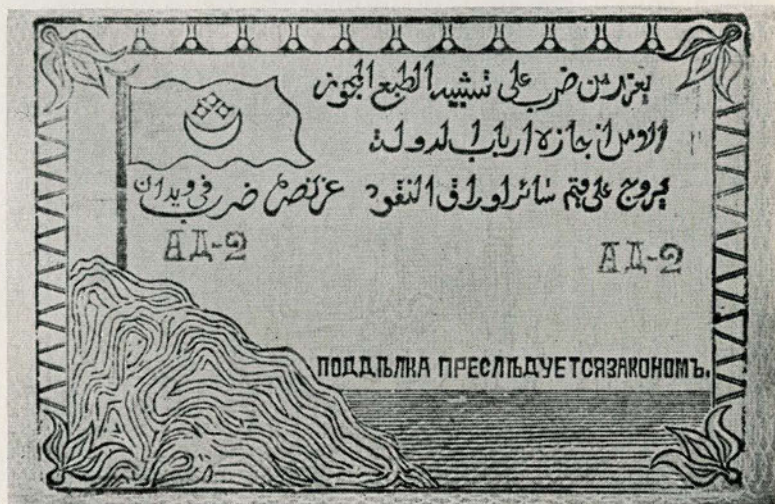 يعزر من ضرب على تشبيه الطبع المجوز
الا من اجازه ارباب الدولة
يروج على قيم سائر اوراق النقود ضرب في ويدان
АД-2 АД-2
ПОДДѢЛКА ПРЕСЛѢДУЕТСЯЗАКОНОМЪ.